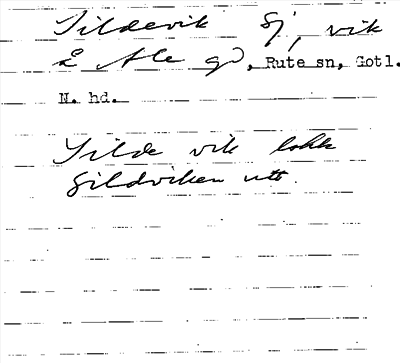 Sildevik Sj, vik
å Ale gd, Rute sn, Gotl.
N. hd.
Silde vik lokk
Sildviken utt.